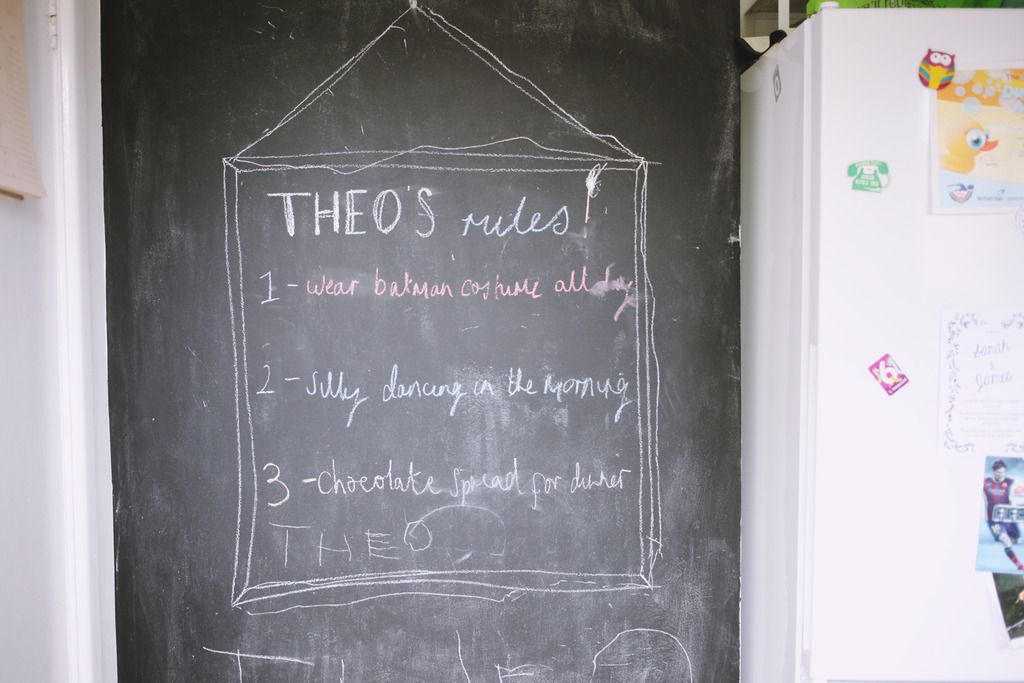 THEO'S rules!
1 - wear batman costume all day
2 - silly dancing in the morning
3 - chocolate spread for dinner
THEO
Sarah
James